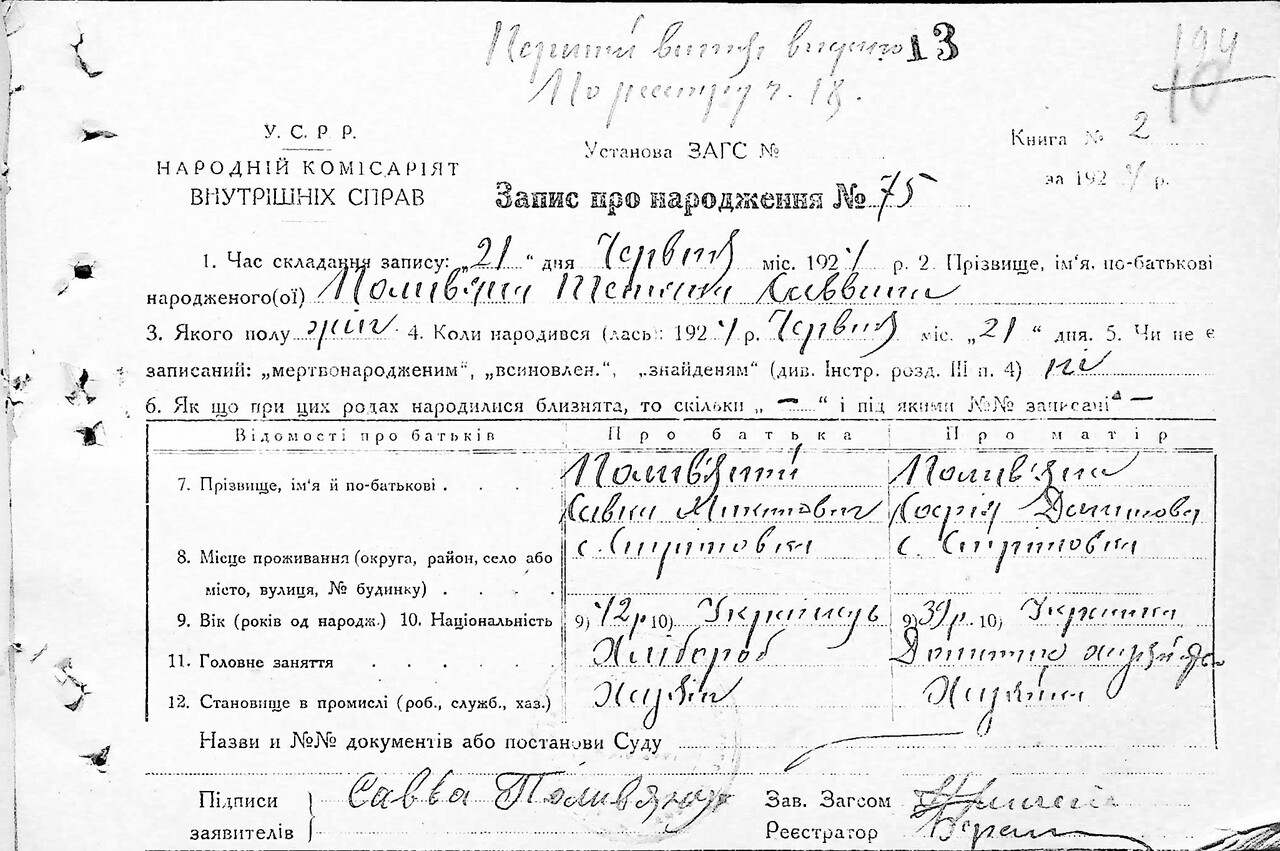 Перший витяг видано 13
По реєстру ч. 18. 10
У. С. Р Р.
НАРОДНІЙ КОМІСАРІЯТ
ВНУТРІШНІХ СПРАВ
Установа ЗАГС №
Книга № 2
за 192 р.
Запис про народження № 75
1. Час складання запису: „21“ дня Червня міс. 192 р. 2. Прізвище, ім'я, по-батькові
народженого(ої) Полив'яна Саввина
3. Якого полу жін. 4. Коли народився (лась): 192 р. Червня міс. „21“ дня. 5. Чи не є
записаний: „мертвонародженим“, „всиновлен.“, „знайденям“ (див. Інстр. розд. III п. 4) ні
6. Як що при цих родах народилися близнята, то скільки „ — “ і під якими №№ записачі —
Відомості про батьків Про батька Про матір
7. Прізвище, ім'я й по-батькові . . . . Полив'яний Полив'яна
Савка Микитович Софія Данилова
8. Місце проживання (округа, район, село або с. с.
місто, вулиця, № будинку) . . . .
9. Вік (років од народж.) 10. Національність 9) 42р 10) Українець 9) 39р. 10) Українка
11. Головне заняття . . . . . . Хлібороб Домашнє
12. Становище в промислі (роб., служб., хаз.) Хазяїн Хазяйка
Назви и №№ документів або постанови Суду
Підписи Савва Полив'яный Зав. Загсом
заявителів Реєстратор